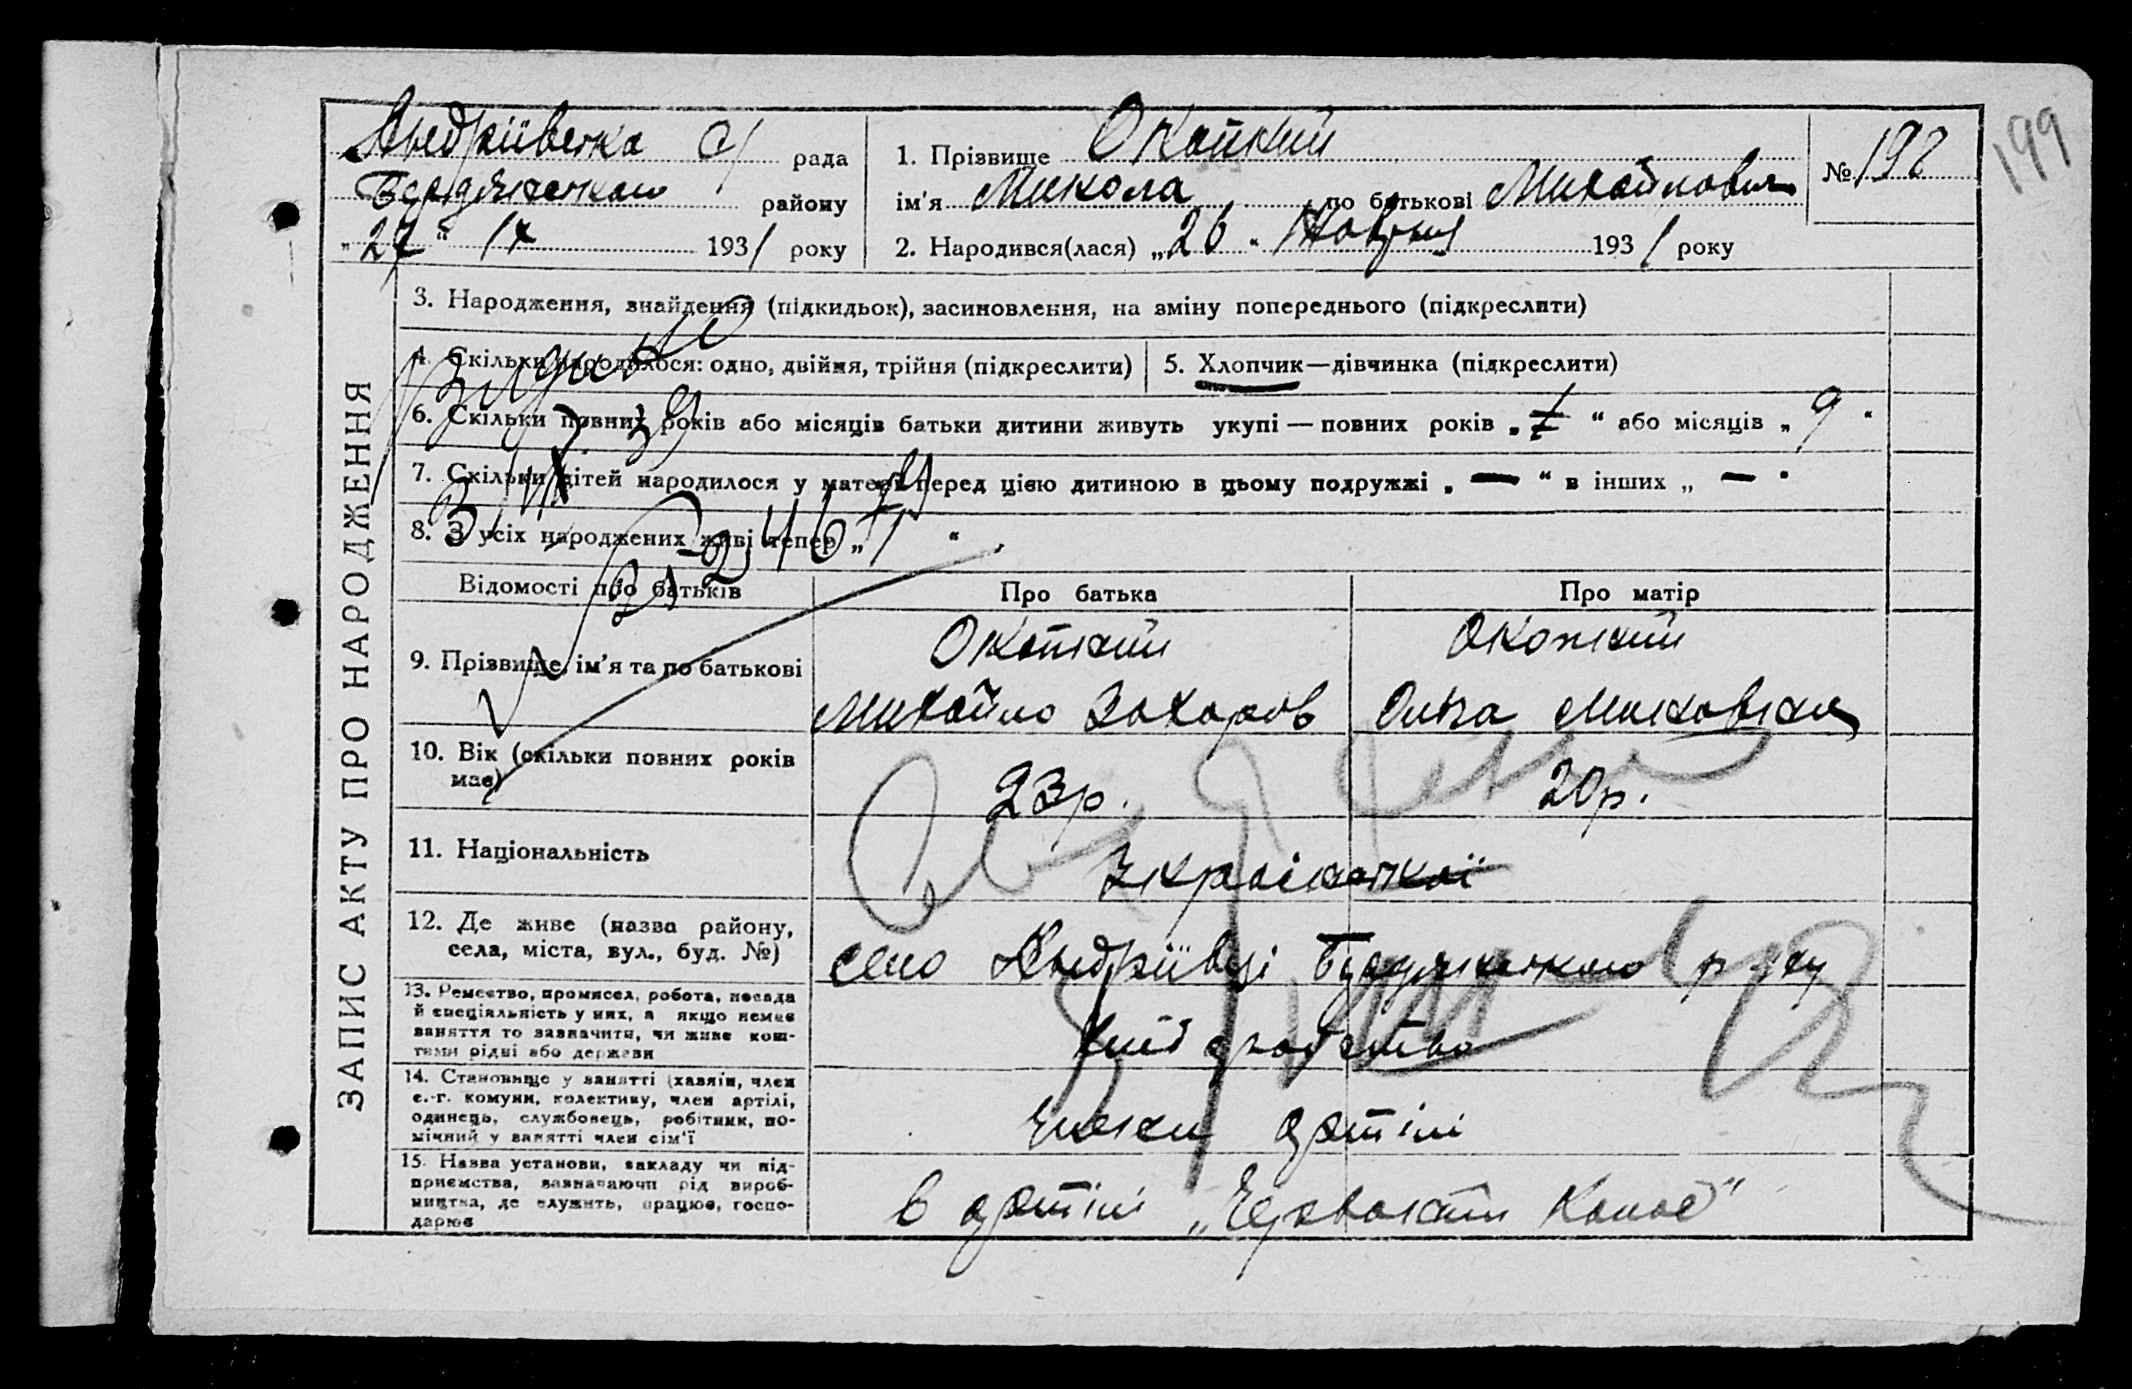 Андріївська с/ рада
Бердянського району
„27“ IX 1931 року
1. Прізвище Окопний
ім'я Микола по батькові Михайлович
2. Народився(лася) „26“ Жовтня 1931 року
№ 192
199
ЗАПИС АКТУ ПРО НАРОДЖЕННЯ
3. Народження, знайдення (підкидьок), засиновлення, на зміну попереднього (підкреслити)
4. Скільки народилося: одно, двійня, трійня (підкреслити)
5. Хлопчик—дівчинка (підкреслити)
6. Скільки повних років або місяців батьки дитини живуть укупі — повних років „ “ або місяців „ 9 “
7. Скільки дітей народилося у матері перед цією дитиною в цьому подружжі „ — “ в інших „ — “
8. З усіх народжених живі тепер „ “
Відомості про батьків
Про батька
Про матір
9. Прізвище, ім'я та по батькові
Окопний
Михайло Захаров
Окопний
Ольга
10. Вік (скільки повних років має)
23р.
20р.
11. Національність
Української
12. Де живе (назва району,
села, міста, вул., буд. №)
село Андріївці Бердянського р-ну
13. Ремество, промисел, робота, посада
й спеціяльність у них, а якщо немає
заняття то зазначити, чи живе кош-
тами рідні або держави
хліборобство
14. Становище у занятті (хазяїн, член
с.-г. комуни, колективу, член артілі,
одинець, службовець, робітник, по-
мічний у занятті член сім'ї
члени артілі
15. Назва установи, закладу чи під-
приємства, зазначаючи рід вироб-
ництва, де служить, працює, госпо-
дарює
в артілі „Червоний